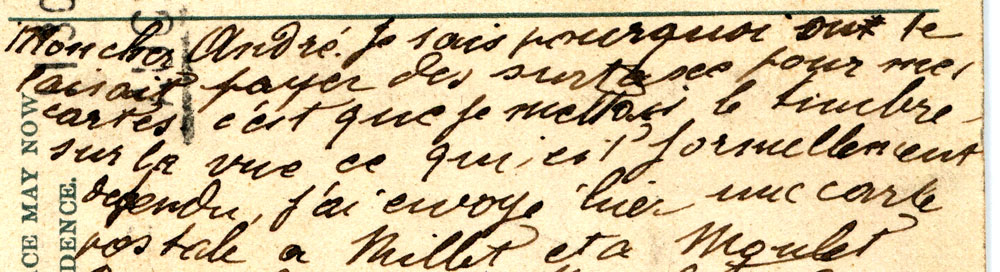 Mon cher André. Je sais pourquoi on te
faisait payer des surtaxes pour mes
cartes c'est que je mettais le timbre
sur la vue ce qui est formellement
defendu, j'ai envoyé hier une carte
postale a Millet et a Moulet
ACE MAY NOW
DENCE.